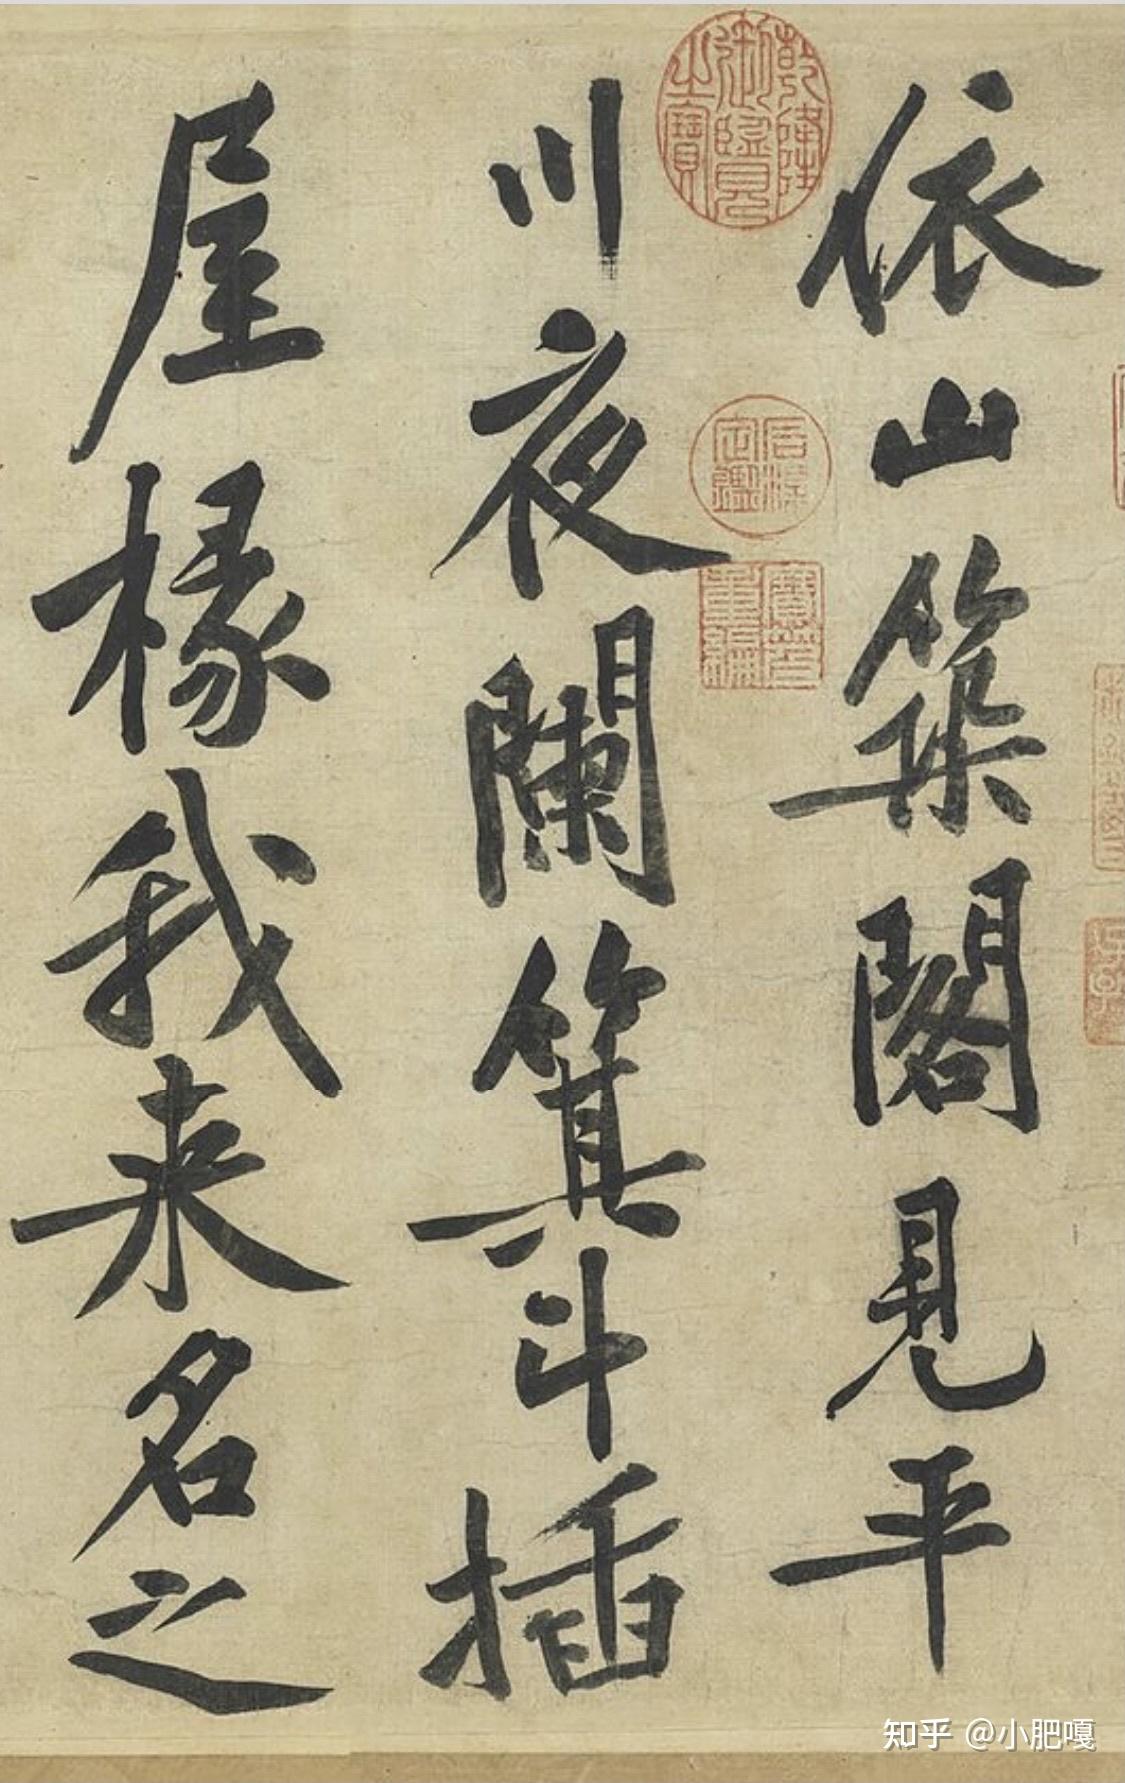 依山築閣見平
川夜闌箕斗插
屋椽我来名之
乾隆御覽之寶
石渠寶笈
石渠定鑑
寶笈重編
知乎 @小肥嘎